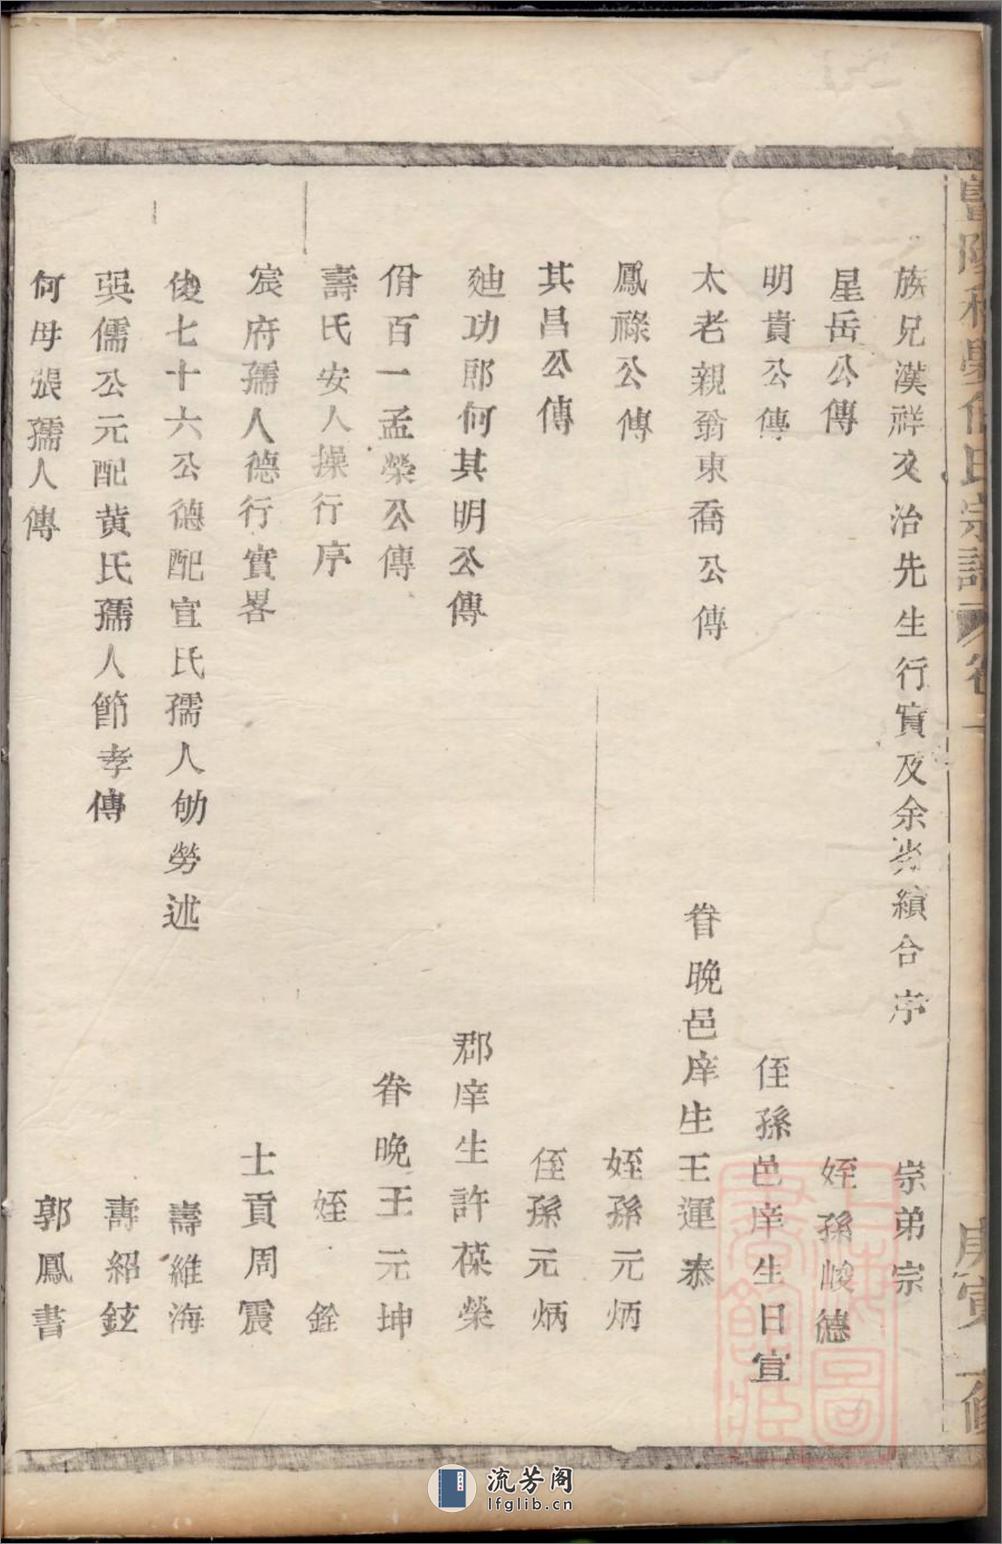 族兄漢祥文治先生行實及余勞績合序 宗弟宗
星岳公傳 姪孫峻德
明貴公傳 侄孫邑庠生日宣
太老親翁東喬公傳 眷晚邑庠生王運泰
鳳祿公傳 姪孫元炳
其昌公傳 侄孫元炳
廸功郎何其明公傳 郡庠生許葆榮
佾百一孟榮公傳 眷晚王元坤
壽氏安人操行序 姪銓
宸府孺人德行實畧 士貢周震
俊七十六公德配宣氏孺人劬勞述 壽維海
吳儒公元配黃氏孺人節孝傳 壽紹鉉
何母張孺人傳 郭鳳書
氏宗譜 卷 庚寅 修
流芳阁
lfglib.cn